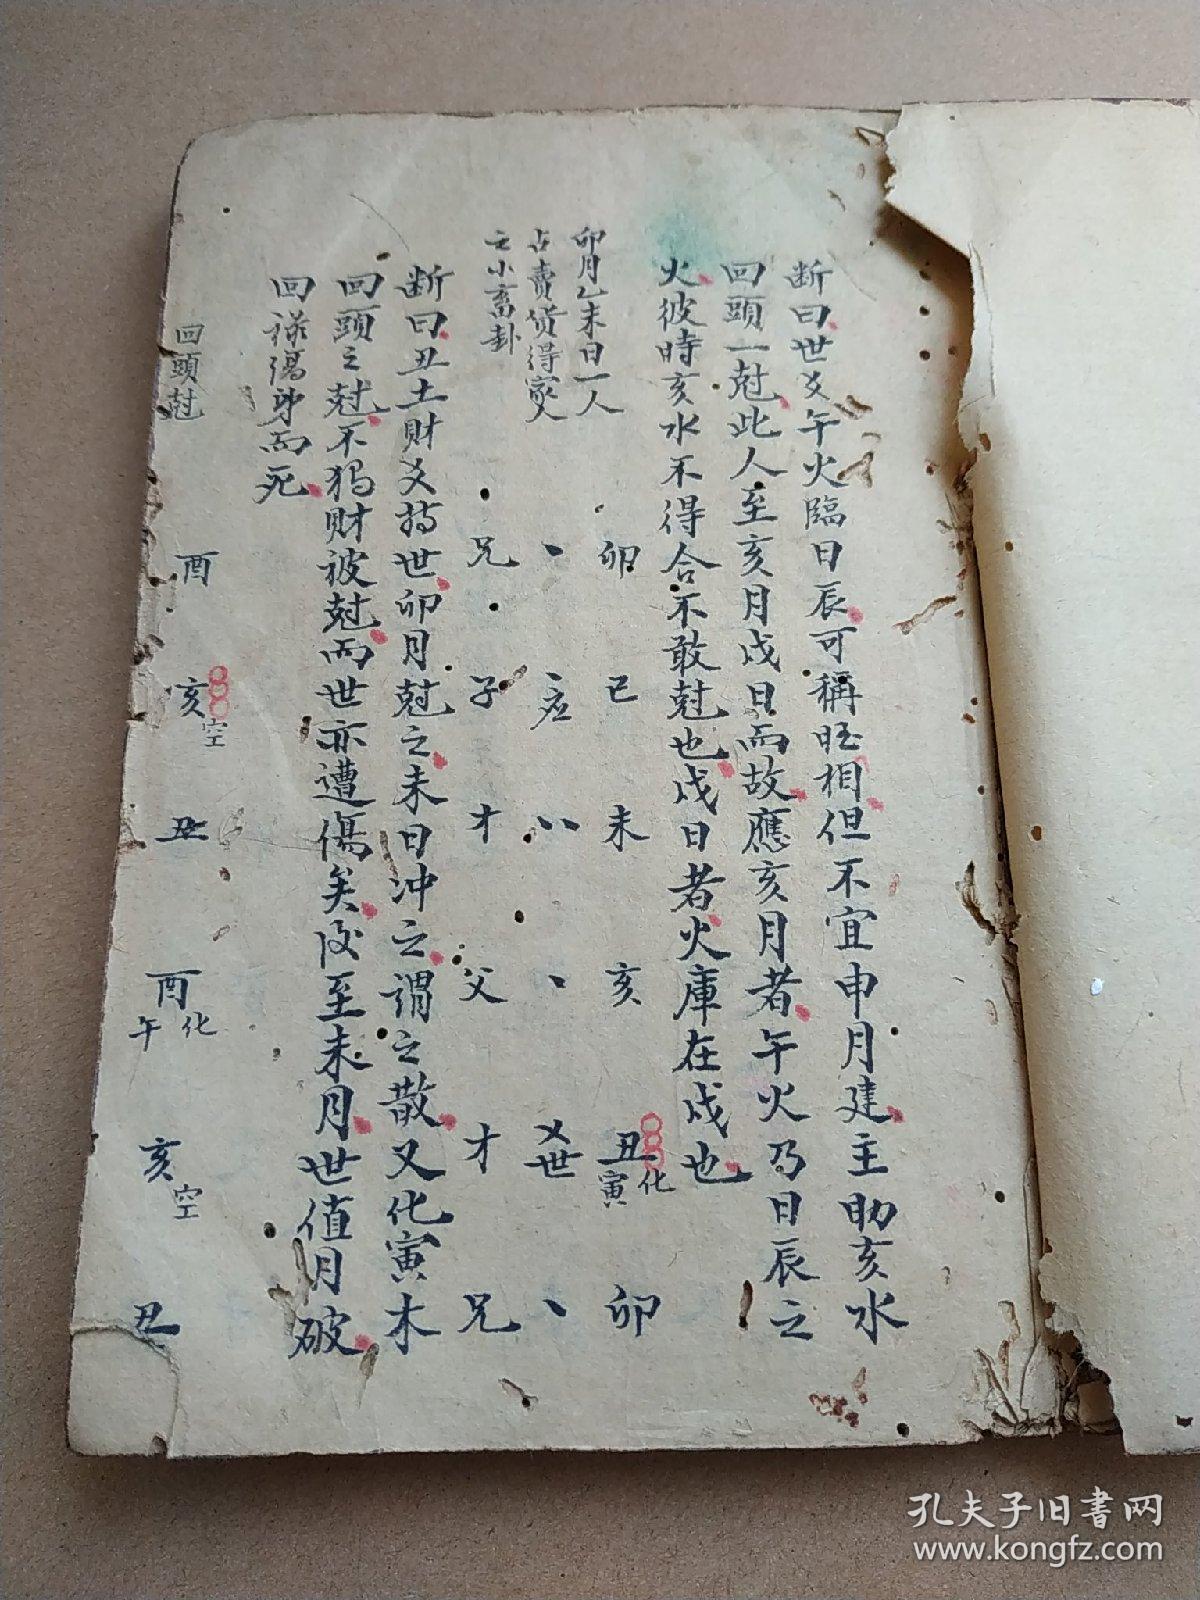 断曰世爻午火臨日辰可稱旺相但不宜申月建主助亥水
回頭一尅此人至亥月戊日而故應亥月者午火乃日辰之
火彼時亥水不得合不敢尅也戌日者火庫在戌也
卯月乙未日一人
占賣貨得家人
之小畜卦
卯 巳 未 亥 丑化寅 卯
丶 丶应 丷 丶 㐅世 丶
兄 子 才 父 才 兄
断曰丑土財爻持世卯月尅之未日冲之謂之散又化寅木
回頭之尅不獨財被尅而世亦遭傷矣後至未月世值月破
回祿傷身而死
回頭尅
酉 亥空 丑 酉化午 亥空 丑
孔夫子旧书网
www.kongfz.com